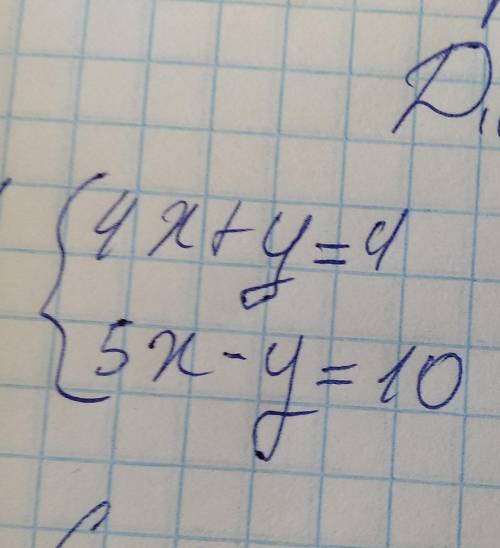 4x+y=4
5x-y=10